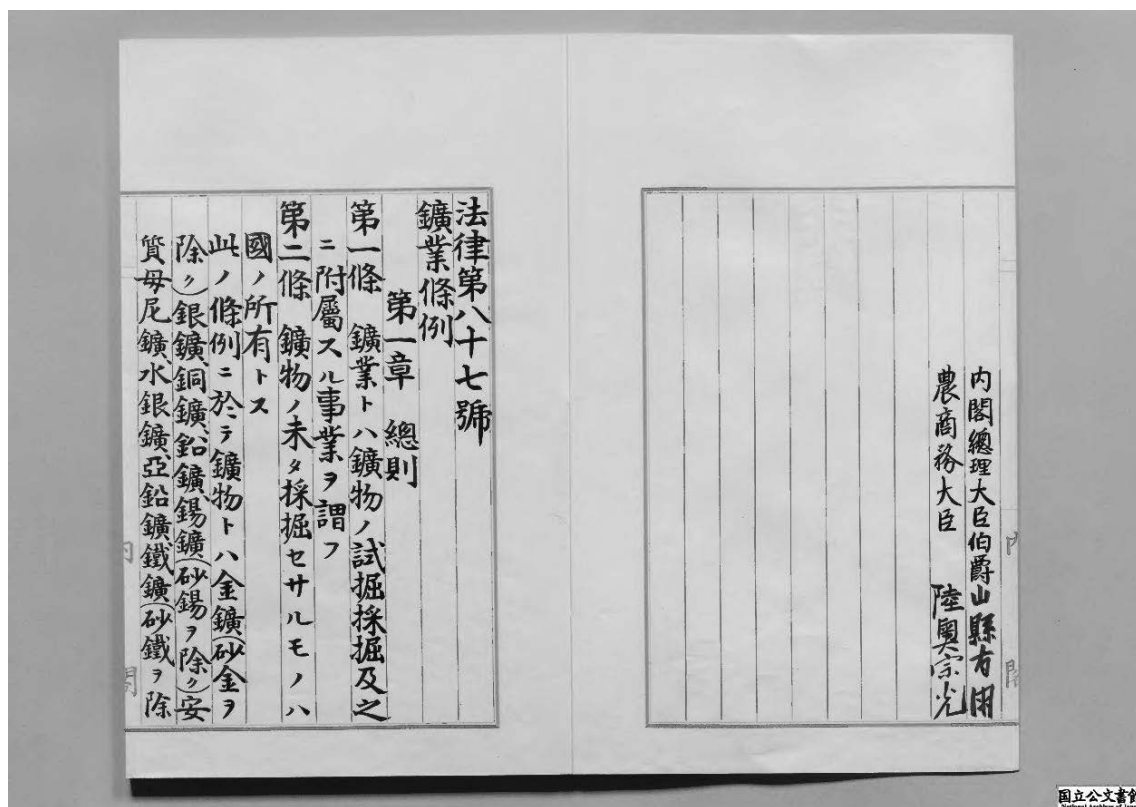 内閣總理大臣伯爵山縣有朋
農商務大臣　陸奧宗光
法律第八十七號
鑛業條例
第一章　總則
第一條　鑛業トハ鑛物ノ試掘採掘及之
ニ附屬スル事業ヲ謂フ
第二條　鑛物ノ未タ採掘セサルモノハ
國ノ所有トス
此ノ條例ニ於テ鑛物トハ金鑛(砂金ヲ
除ク)銀鑛、銅鑛、鉛鑛、錫鑛(砂錫ヲ除ク)安
質母尼鑛、水銀鑛、亞鉛鑛、鐵鑛(砂鐵ヲ除
内閣
内閣
国立公文書館